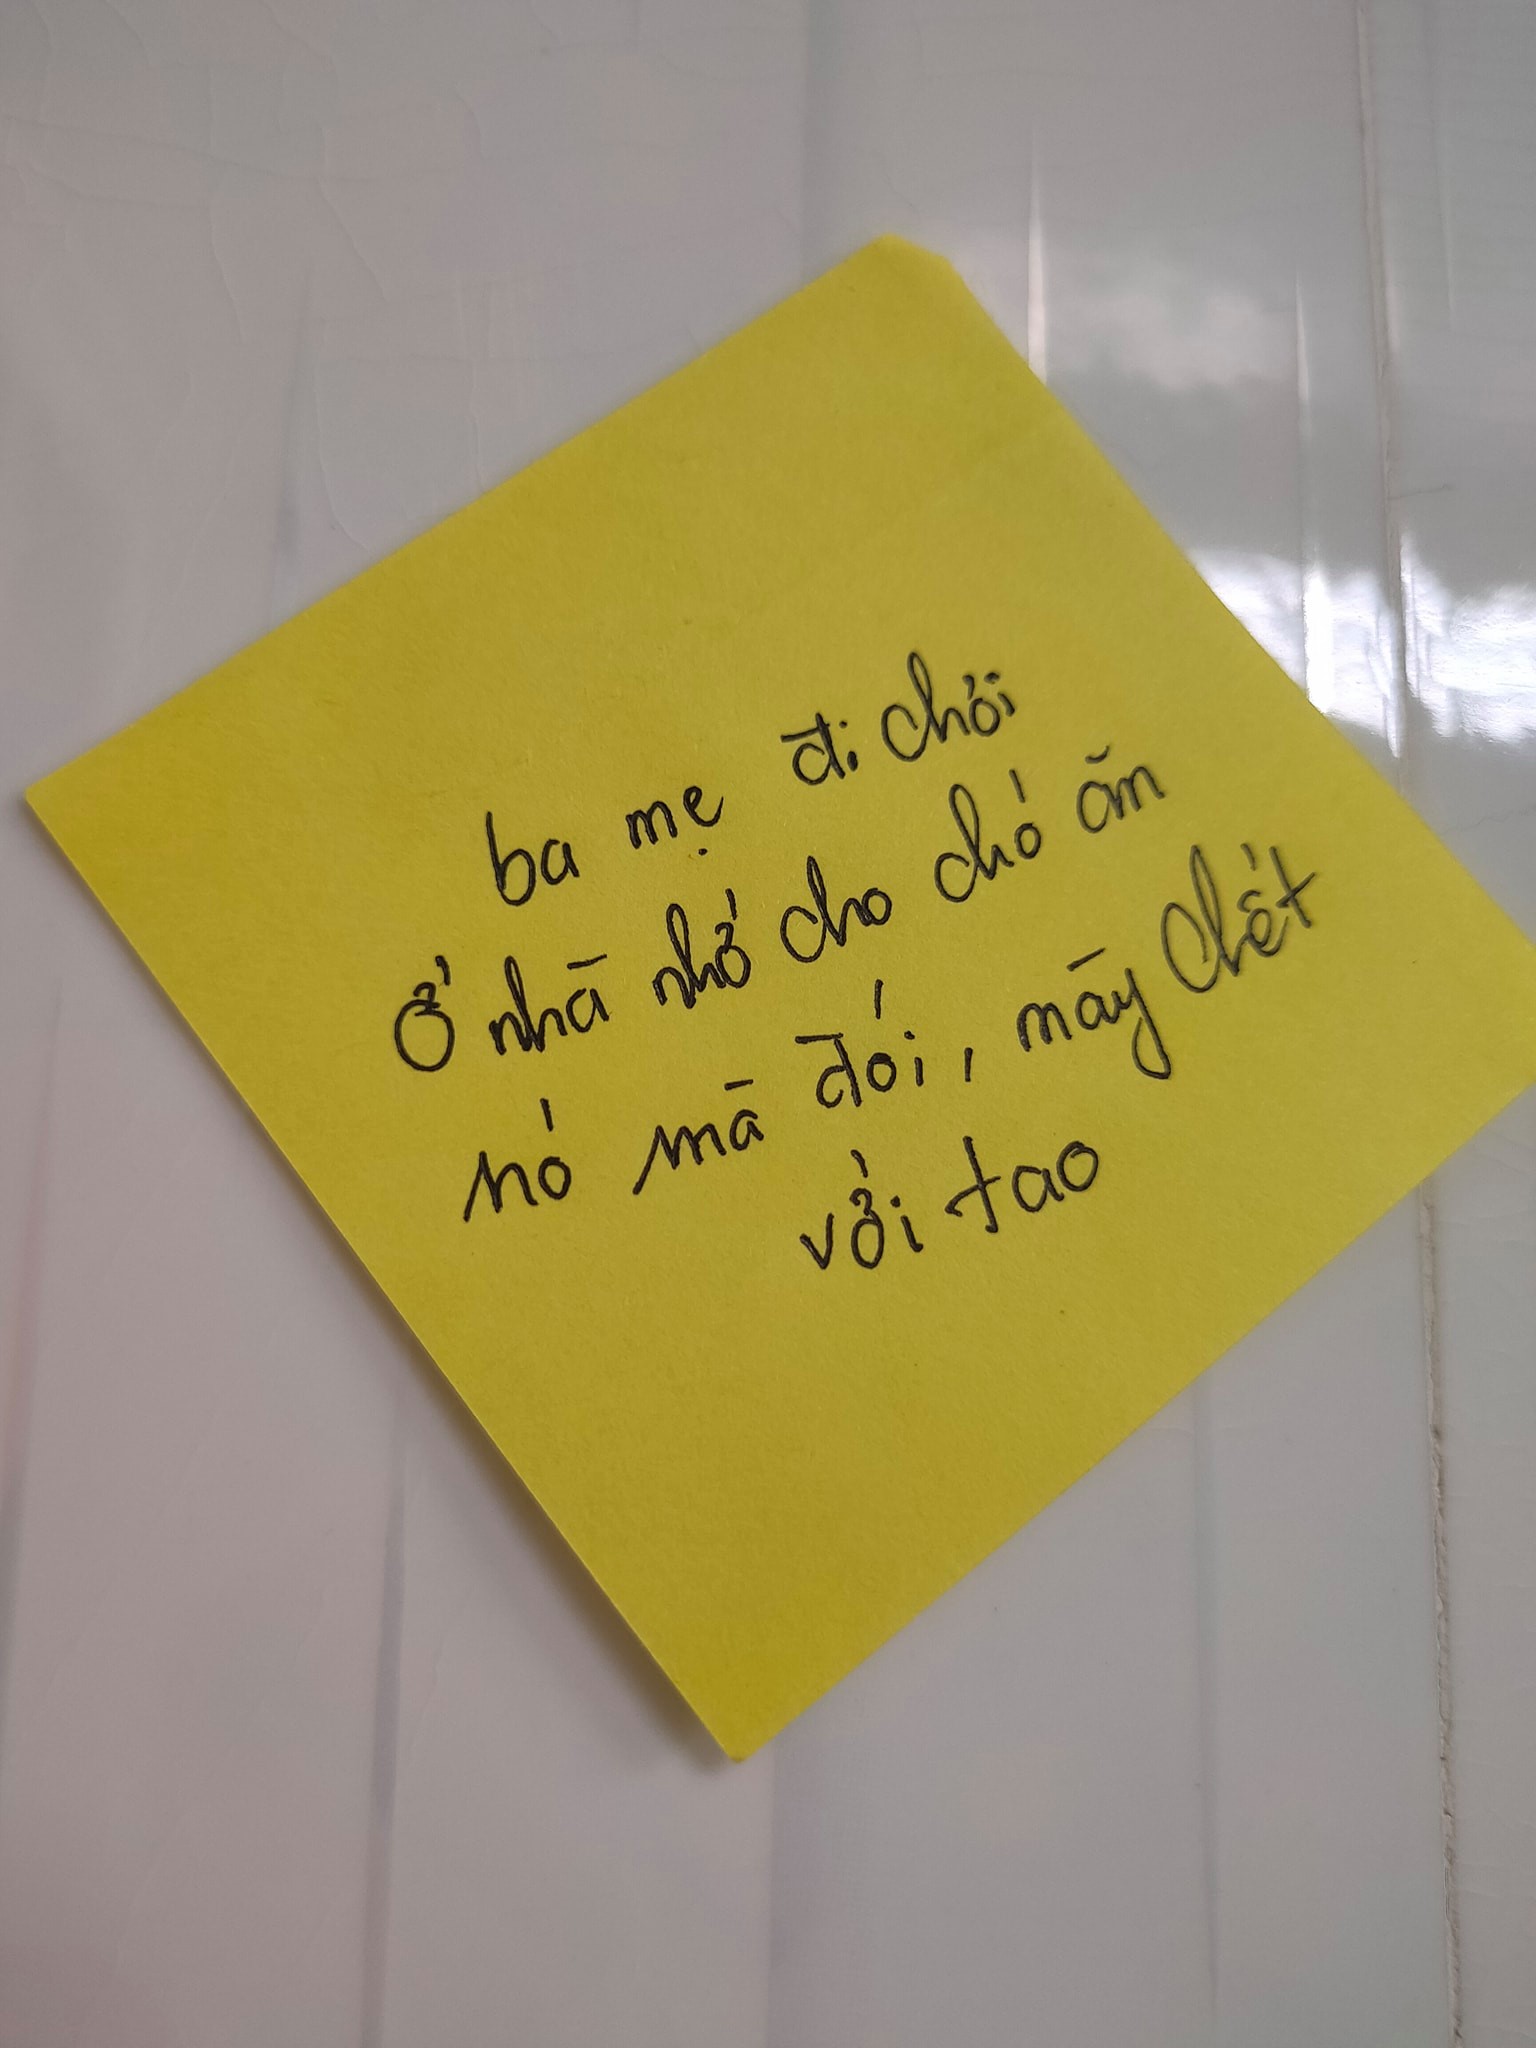 ba mẹ đi chơi
Ở nhà nhớ cho chó ăn
nó mà đói, mày chết
với tao